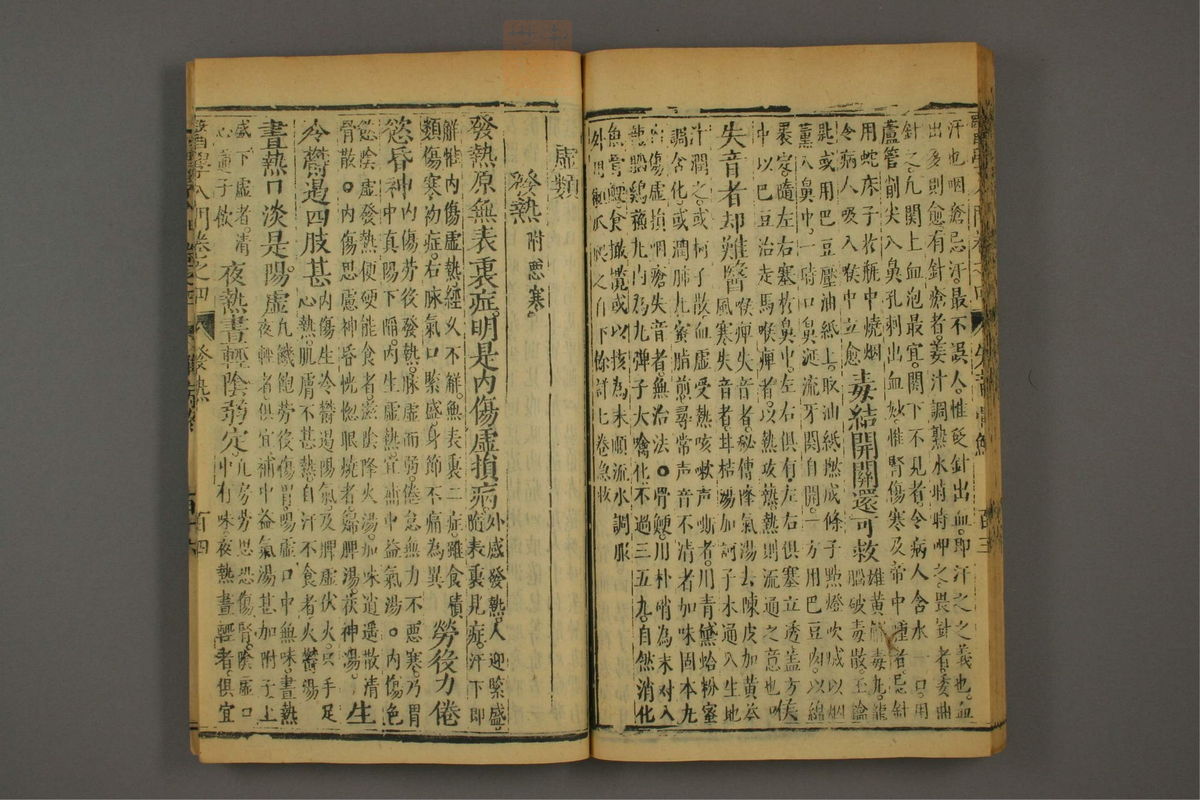 汗也咽瘡忌汗。最不誤人。惟砭針出血。即汗之之義也。血
出多則愈。有針瘡者。姜汁調熟水時時呷之。畏針者。委曲
針之。凡關上血泡最宜。關下不見者。令病人含水一口。用
蘆管削尖入鼻孔刺出血妙。惟腎傷寒及帝中腫者忌針
用蛇床子於瓶中燒烟
令病人吸入喉中立愈毒結開關還可救雄黃解毒丸。龍
腦破毒散。玉鑰
匙或用巴豆壓油紙上。取油紙撚成條子。點燈吹滅以烟
薰入鼻中。一時口鼻涎流牙關自開。一方用巴豆肉。以綿
裹定隨左右塞於鼻中。左右俱有。左右俱塞立透。蓋方侯
中以巴豆治走馬喉痺者。以熱攻熱。熱則流通之意也。
失音者却難醫喉痺失音者。秘傳降氣湯去陳皮加黃芩
風寒失音者。甘桔湯加訶子木通入生地
汁潤之。或柯子散。血虛受熱咳嗽声嘶者。川青黛蛤粉蜜
調含化。或潤肺丸。蜜脂煎。尋常声音不清者加味固本丸
內傷虛損咽瘡失音者。無治法。○骨鯁。用朴硝為末。对入
龍腦鷄蘇丸內。為丸彈子大。噙化。不過三五丸。自然消化
魚骨鯁。食橄欖。或以核為末順流水調服
虛類
發熱附惡寒。
發熱原無表裏症。明是內傷虛損病。外感發熱。人迎緊盛。
附表裏見症。汗下即
解。惟內傷虛熱。經久不解。無表裏二症。雖食積
類傷寒初症。右脉氣口緊盛。身節不痛為異勞役力倦
慾昏神內傷勞役發熱。脉虛而弱。倦怠無力不惡寒。乃胃
中真陽下陷。內生虛熱宜補中益氣湯。○內傷色
慾陰虛發熱便硬能食者。滋陰降火湯。加味逍遥散。清
骨散。○內傷思慮神昏恍惚眼燒者歸脾湯。茯神湯。生
冷鬱遏四肢甚內傷生冷鬱遏陽氣及脾虛伏火。只手足
心熱。肌膚不甚熱。自汗不食者火鬱湯
晝熱口淡是陽虛凡饑飽勞役傷胃。陽虛口中無味。晝熱
夜輕者。俱宜補中益氣湯。甚加附子。上
盛下虛者。清
心蓮子飲夜熱晝輕陰弱定凡房勞思恐傷腎陰虛口
中有味夜熱晝輕者。俱宜
醫學入門卷之四
發熱
百四
百三